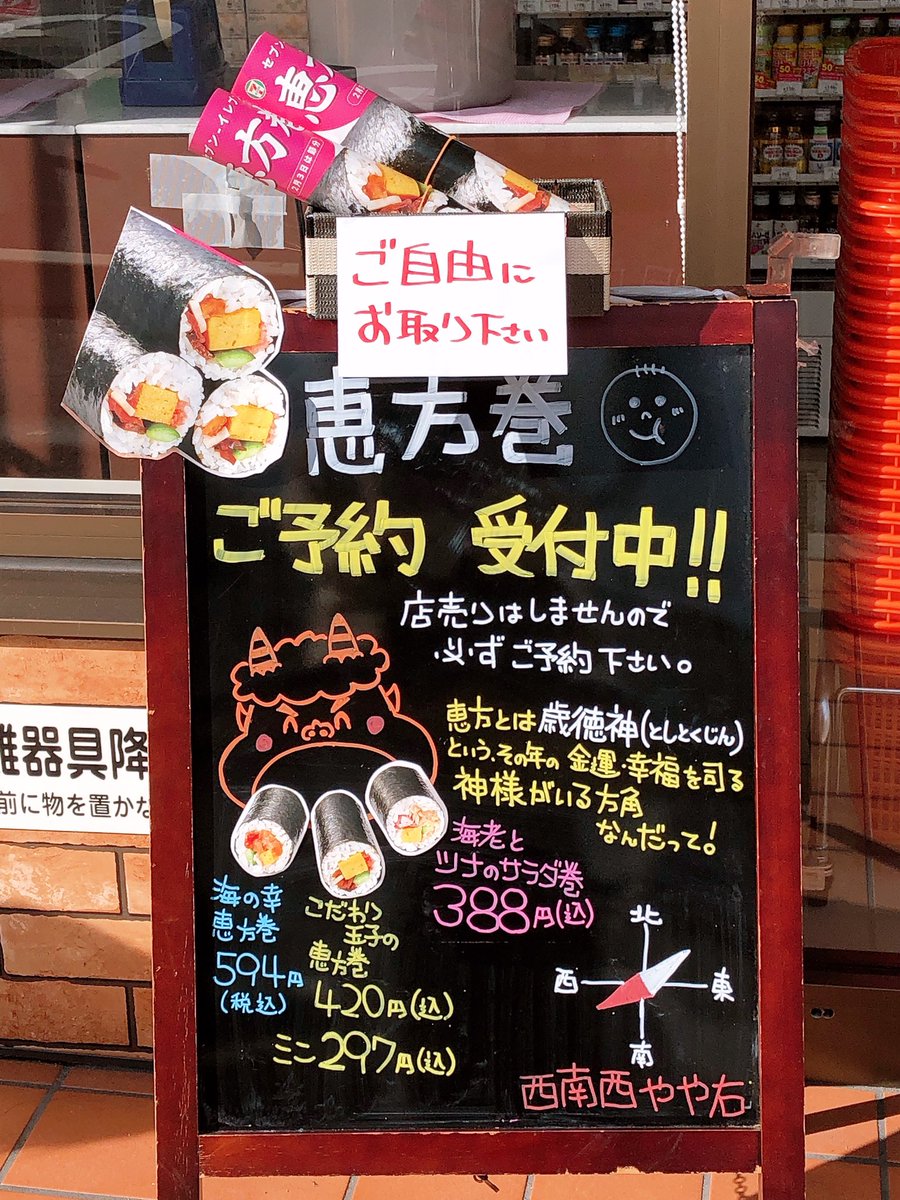 セブン-イレブン
恵方
2月3日は節分
ご自由に
お取り下さい
恵方巻
ご予約 受付中!!
店売りはしませんので
必ずご予約下さい。
恵方とは歳徳神(としとくじん)
という、その年の金運・幸福を司る
神様がいる方角
なんだって!
海老と
ツナのサラダ巻
388円(込)
海の幸
恵方巻
594円
(税込)
こだわり
玉子の
恵方巻
420円(込)
ミニ297円(込)
北
西
東
南
西南西やや右
難器具降
前に物を置かな